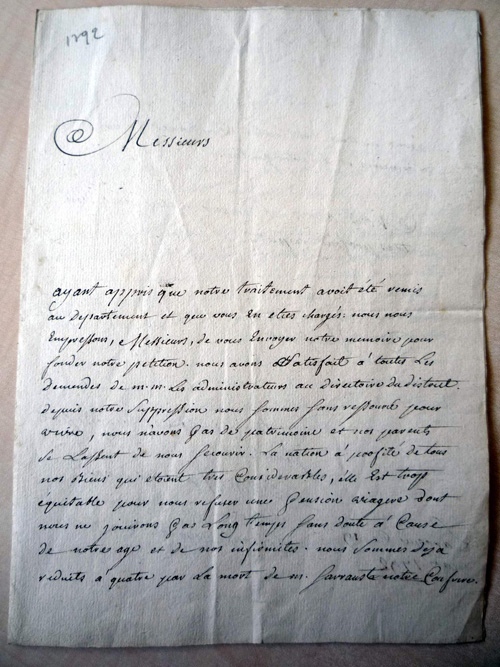 1792
Messieurs
ayant appris que notre traitement avoit été remis
au departement et que vous En eties chargés: nous nous
Empressons, Messieurs, de vous Envoyer notre memoire pour
fonder notre petition. nous avons Satisfait a toutes Les
demendes de m.m. Les administrateurs au directoire du district.
depuis notre Suppression nous sommes sans ressource pour
vivre, nous n'avons pas de patrimoine et nos parents
se Lassent de nous secourir. La nation à profité de tous
nos Biens qui etoient tres Considerables, elle Est trop
équitable pour nous refuser une pension viagere dont
nous ne jouirons pas Long temps sans doute à Cause
de notre age et de nos infirmites. nous sommes deja
reduits à quatre par La mort de m. notre Confrere.